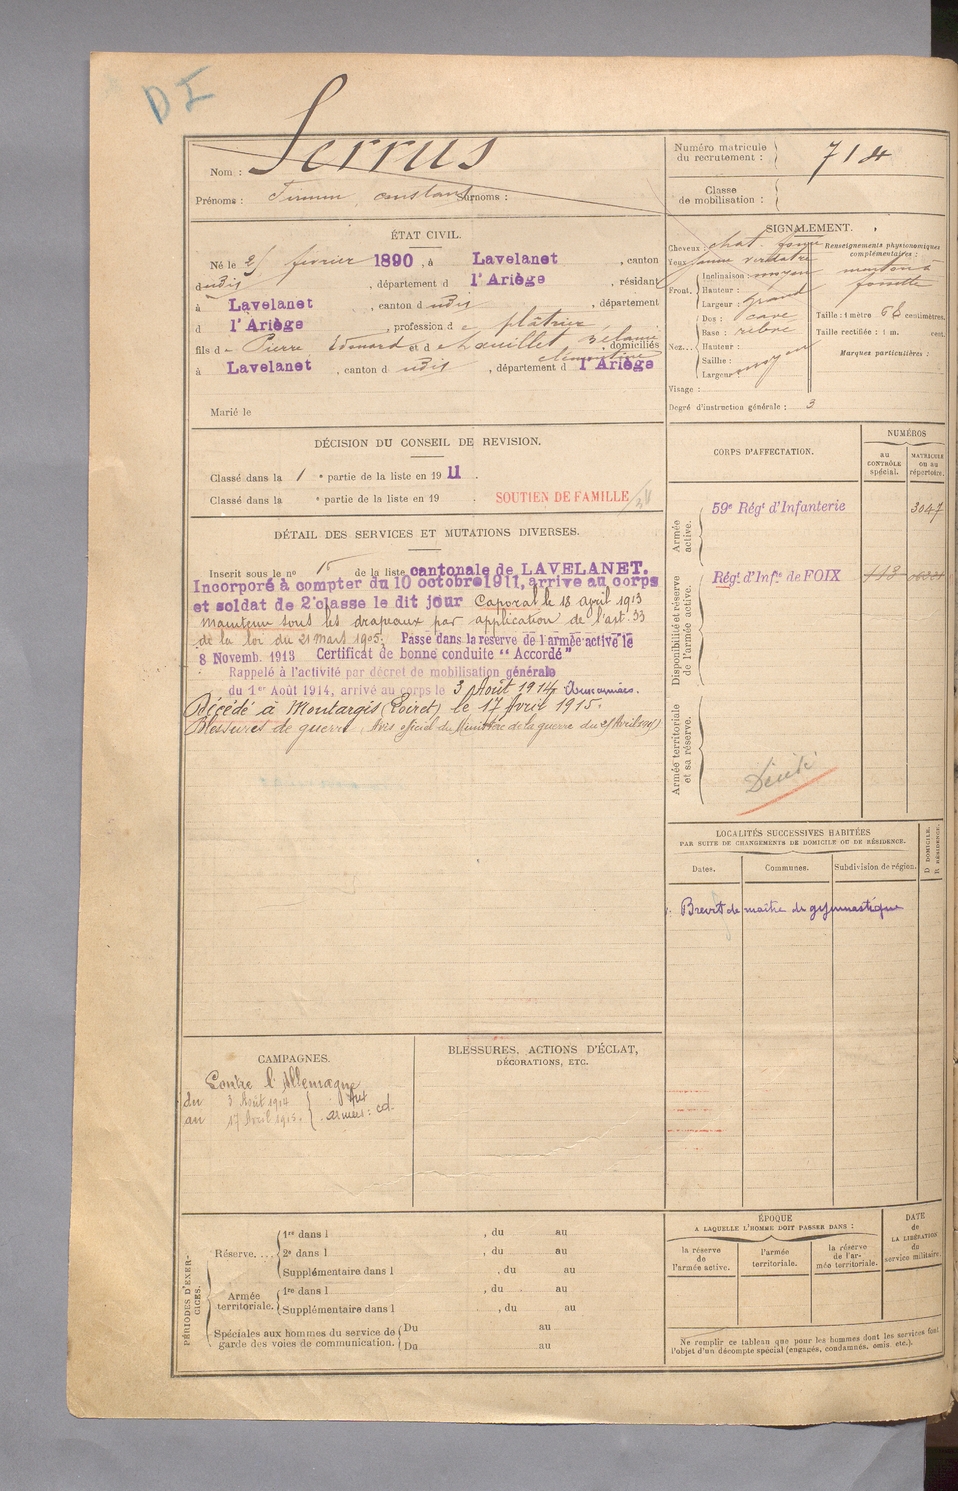 DI
Nom : Serrus
Prénoms : Firmin, constant Surnoms :
Numéro matricule du recrutement : 714
Classe de mobilisation :
ÉTAT CIVIL.
Né le février 1890, à Lavelanet, canton
dudit, département d l'Ariège, résidant
à Lavelanet, canton dudit, département
d l'Ariège, profession de plâtrier,
fils de Pierre, Edouard et de Mélanie clémentine, domiciliés
à Lavelanet, canton dudit, département d l'Ariège
Marié le
SIGNALEMENT.
Cheveux : chat.
Yeux jaune verdâtre
Front. Inclinaison : moyen
Hauteur :
Largeur : grand
Nez... Dos : cave
Base : relevé
Hauteur :
Saillie :
Largeur : moyen
Visage :
Degré d'instruction générale : 3
Renseignements physionomiques complémentaires :
menton à
fossette
Taille : 1 mètre 68 centimètres.
Taille rectifiée : 1 m. cent.
Marques particulières :
DÉCISION DU CONSEIL DE REVISION.
Classé dans la 1e partie de la liste en 1911.
Classé dans la e partie de la liste en 19 .
SOUTIEN DE FAMILLE
DÉTAIL DES SERVICES ET MUTATIONS DIVERSES.
Inscrit sous le no 15 de la liste cantonale de LAVELANET.
Incorporé à compter du 10 octobre 1911, arrive au corps
et soldat de 2e classe le dit jour Caporal le 18 avril 1913
maintenu sous les drapeaux par application de l'art. 33
de la loi du 21 mars 1905. Passe dans la réserve de l'armée active le
8 Novemb. 1913 Certificat de bonne conduite "Accordé"
Rappelé à l'activité par décret de mobilisation générale
du 1er Août 1914, arrivé au corps le 3 Août 1914 Aux armées.
Décédé à Montargis (Loiret) le 17 Avril 1915.
Blessures de guerre, Avis officiel du Ministère de la guerre du Avril
CORPS D'AFFECTATION.
NUMÉROS
au CONTRÔLE spécial.
MATRICULE ou au répertoire.
Armée active.
59e Régt d'Infanterie 3047
Disponibilité et réserve de l'armée active.
Régt d'Infie de FOIX
Armée territoriale et sa réserve.
Décédé
LOCALITÉS SUCCESSIVES HABITÉES
PAR SUITE DE CHANGEMENTS DE DOMICILE OU DE RÉSIDENCE.
Dates.
Communes.
Subdivision de région.
D DOMICILE. R RÉSIDENCE.
Brevet de maître de gymnastique
CAMPAGNES.
Contre l'Allemagne
du 3 Août 1914
au 17 Avril 1915. armées : cd.
BLESSURES, ACTIONS D'ÉCLAT,
DÉCORATIONS, ETC.
PÉRIODES D'EXERCICES.
Réserve.... 1re dans l , du au
2e dans l , du au
Supplémentaire dans l , du au
Armée territoriale. 1re dans l , du au
Supplémentaire dans l , du au
Spéciales aux hommes du service de garde des voies de communication. Du au
Du au
ÉPOQUE
A LAQUELLE L'HOMME DOIT PASSER DANS :
la réserve de l'armée active.
l'armée territoriale.
la réserve de l'armée territoriale.
DATE de LA LIBÉRATION du service militaire.
Ne remplir ce tableau que pour les hommes dont les services font
l'objet d'un décompte spécial (engagés, condamnés, omis, etc.).